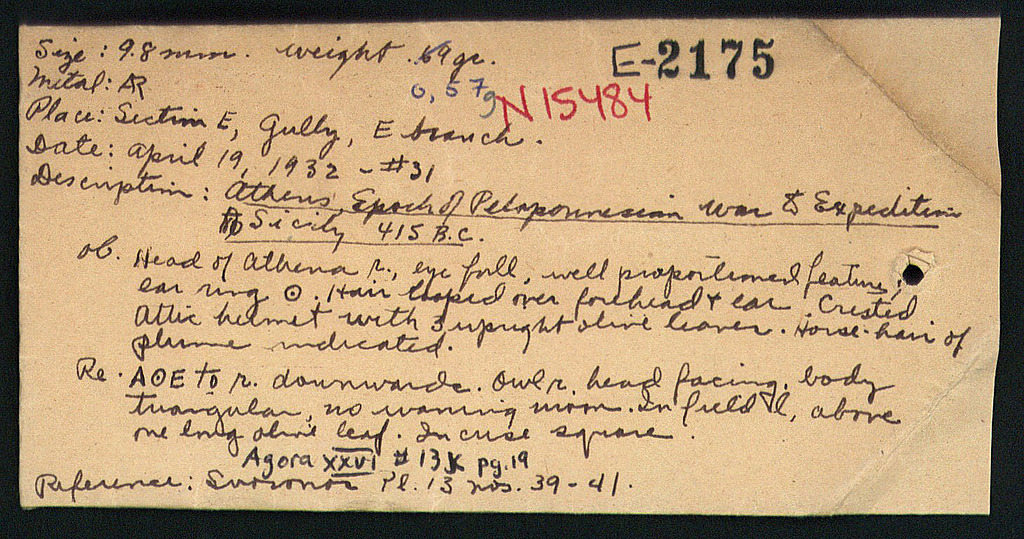 Size: 9.8 mm. weight .69 gr.
E-2175
Metal: AR
0,57g
N15484
Place: Section E, Gully, E branch.
Date: April 19, 1932 - #31
Description: Athens, Epoch of Peloponnesian War & Expedition
Sicily 415 B.C.
ob. Head of Athena r., eye full, well proportioned features;
ear ring ⊙. Hair looped over forehead & ear. Crested
Attic helmet with 3 upright olive leaves. Horse-hair of
plume indicated.
Re. AΘE to r. downwards. Owl r. head facing. body
triangular, no waning moon. In field l, above
one long olive leaf. Incuse square.
Agora XXVI #13k pg.19
Reference: Svoronos Pl. 13 nos. 39-41.